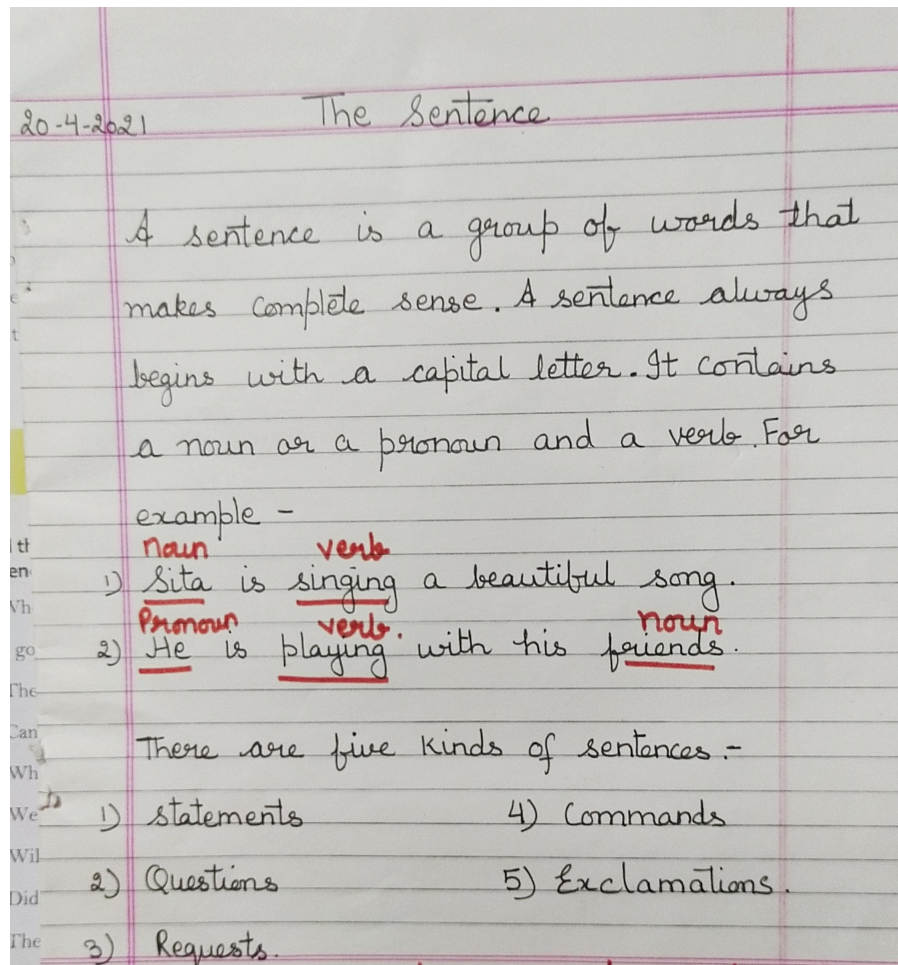 The Sentence
20-4-2021
A sentence is a group of words that
makes complete sense. A sentence always
begins with a capital letter. It contains
a noun or a pronoun and a verb. For
example -
noun verb
1) Sita is singing a beautiful song.
Pronoun verb. noun
2) He is playing with his friends.
There are five kinds of sentences :-
1) Statements 4) Commands
2) Questions 5) Exclamations.
3) Requests.
en
go
The
Can
Wh
We
Wil
Did
The